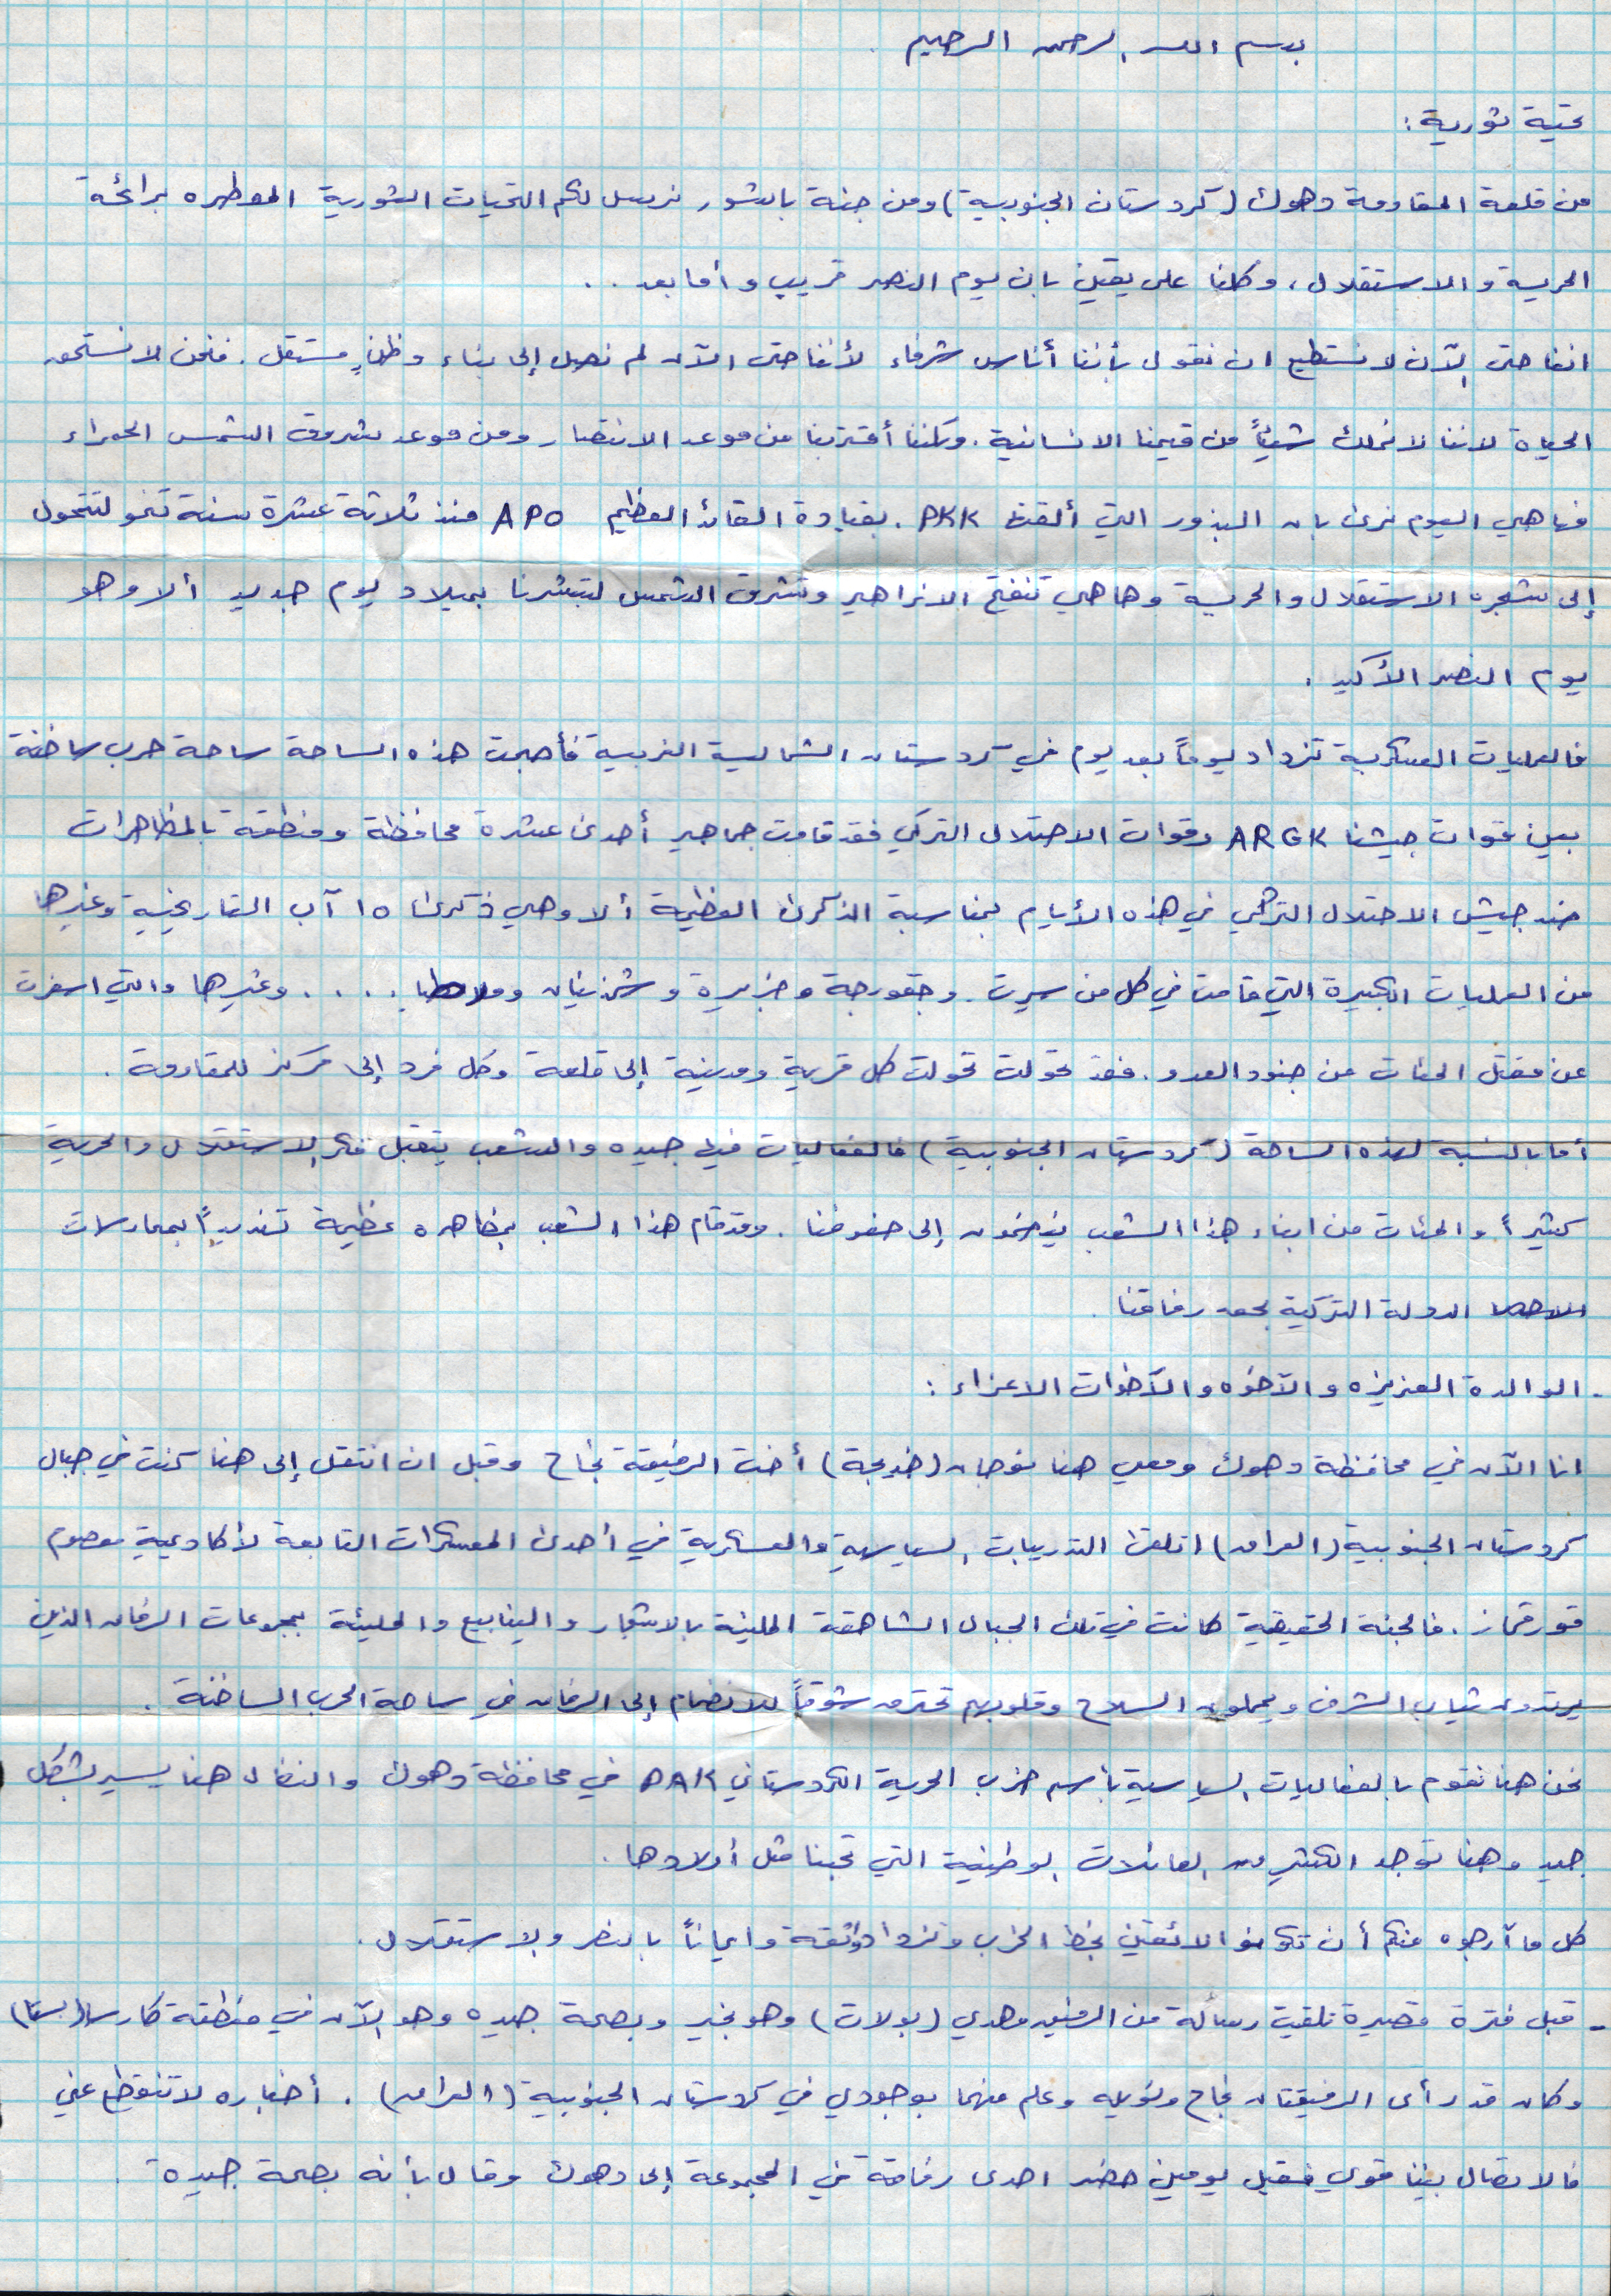 بسم الله الرحمن الرحيم .
تحية ثورية :
من قلعة المقاومة دهوك ( كردستان الجنوبية ) ومن جنة باشور نرسل لكم التحيات الثورية المعطره برائحة
الحرية والاستقلال ، وكلنا على يقين بان يوم النصر قريب وأما بعد . .
اننا حتى الآن لا نستطيع ان نقول بأننا أناس شرفاء لأننا حتى الآن لم نصل إلى بناء وطنٍ مستقل . فنحن لا نستحق
الحياة لاننا لا نملك شيئاً من قيمنا الانسانية . ولكننا أقتربنا من موعد الانتصار ومن موعد شروق الشمس الحمراء
فها هي اليوم نرى بان البذور التي ألقت PKK . بقيادة القائد العظيم APO منذ ثلاثة عشرة سنة تنمو لتتحول
إلى شجره الاستقلال والحرية وها هي تنفتح الازاهير وتشرق الشمس لتبشرنا بميلاد يوم جديد ألا وهو
يوم النصر الأكيد .
فالعمليات العسكرية تزداد يوماً بعد يوم في كردستان الشمالية الغربية فأصبحت هذه الساحة ساحة حرب ساخنة
بين قوات جيشنا ARGK وقوات الاحتلال التركي فقد قامت جماهير أحدى عشرة محافظة ومنطقة بالمظاهرات
ضد جيش الاحتلال التركي في هذه الأيام بمناسبة الذكرى العظيمة ألا وهي ذكرى ١٥ آب التاريخية وغيرها
من العمليات الكبيرة التي قامت في كل من سيرت . وجقورجة وجزيرة وشمذينان و . . . . وغيرها والتي اسفرت
عن مقتل المئات من جنود العدو . فقد تحولت تحولت كل قرية ومدينة إلى قلعة وكل فرد إلى مركز للمقاومة .
أما بالنسبة لهذه الساحة ( كردستان الجنوبية ) فالفعاليات فيها جيده والشعب يتقبل فكر الاستقلال والحرية
كثيراً والمئات من ابناء هذا الشعب ينضمون إلى صفوفنا . وقد قام هذا الشعب بمظاهره عظيمة تنديداً بممارسات
الدولة التركية بحق رفاقنا .
- الوالدة العزيزه والآخوه والآخوات الاعزاء :
انا الآن في محافظة دهوك ومعي هنا نوجان ( خديجة ) أخت الرفيقة نجاح وقبل ان انتقل إلى هنا كنت في جبال
كردستان الجنوبية ( العراق ) اتلقى التدريبات السياسية والعسكرية في أحدى المعسكرات التابعة لأكاديمية معصوم
قورقماز . فالجنة الحقيقية كانت في تلك الجبال الشاهقة المليئة بالاشجار والينابيع والمليئة بمجموعات الرفاق الذين
يرتدون ثياب الشرف ويحملون السلاح وقلوبهم تحترق شوقاً للانضمام إلى الرفاق في ساحة الحرب الساخنة .
نحن هنا نقوم بالفعاليات السياسية بأسم حزب الحرية الكردستاني PAK في محافظة دهوك والنضال هنا يسير بشكل
جيد وهنا توجد الكثير من العائلات الوطنية التي تحبنا مثل أولادها .
كل ما آرجوه منكم أن تكونو الائقين بخط الحزب وتزدادو ثقة وايماناً بالنصر والاستقلال .
- قبل فترة قصيرة تلقيت رسالة من الرفيق مهدي ( بولات ) وهو بخير وبصحة جيده وهو الآن في منطقة كارسا ( بستا )
وكان قد رأى الرفيقتان نجاح و وعلم منهما بوجودي في كردستان الجنوبية ( العراق ) . أخباره لا تنقطع عني
فالاتصال بيننا قوي فقبل يومين حضر احدى رفاقة في المجموعة إلى دهوك وقال بأنه بصحة جيدة .